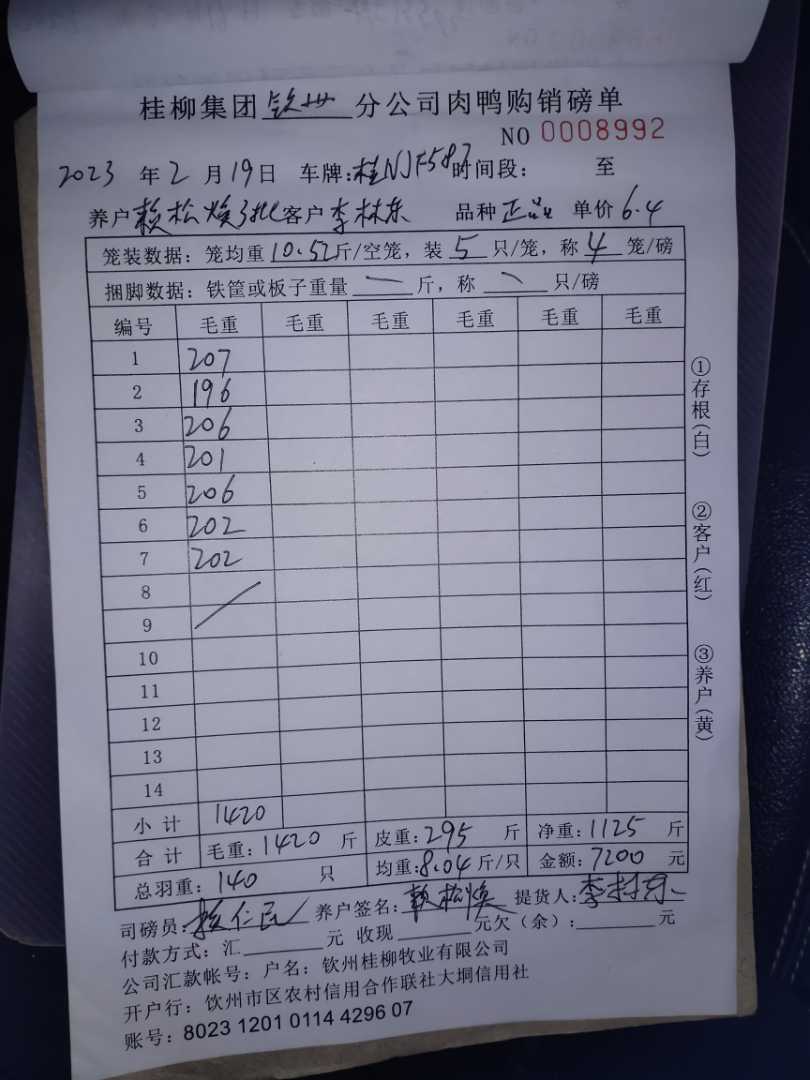 桂柳集团钦州分公司肉鸭购销磅单
NO 0008992
2023年2月19日 车牌:桂NJF587时间段: 至
养户赖松焕3批客户李林东 品种正品 单价6.4
笼装数据:笼均重10.52斤/空笼,装5只/笼,称4笼/磅
捆脚数据:铁筐或板子重量 — 斤,称 — 只/磅
编号 毛重 毛重 毛重 毛重 毛重 毛重
1 207
2 196
3 206
4 201
5 206
6 202
7 202
8
9
10
11
12
13
14
小计 1420
合计 毛重:1420斤 皮重:295斤 净重:1125斤
总羽重:140只 均重:8.04斤/只 金额:7200元
司磅员: 养户签名:赖松焕 提货人:李林东
付款方式:汇 元 收现 元欠(余): 元
公司汇款帐号:户名:钦州桂柳牧业有限公司
开户行:钦州市区农村信用合作联社大垌信用社
账号:8023 1201 0114 4296 07
①存根(白)
②客户(红)
③养户(黄)